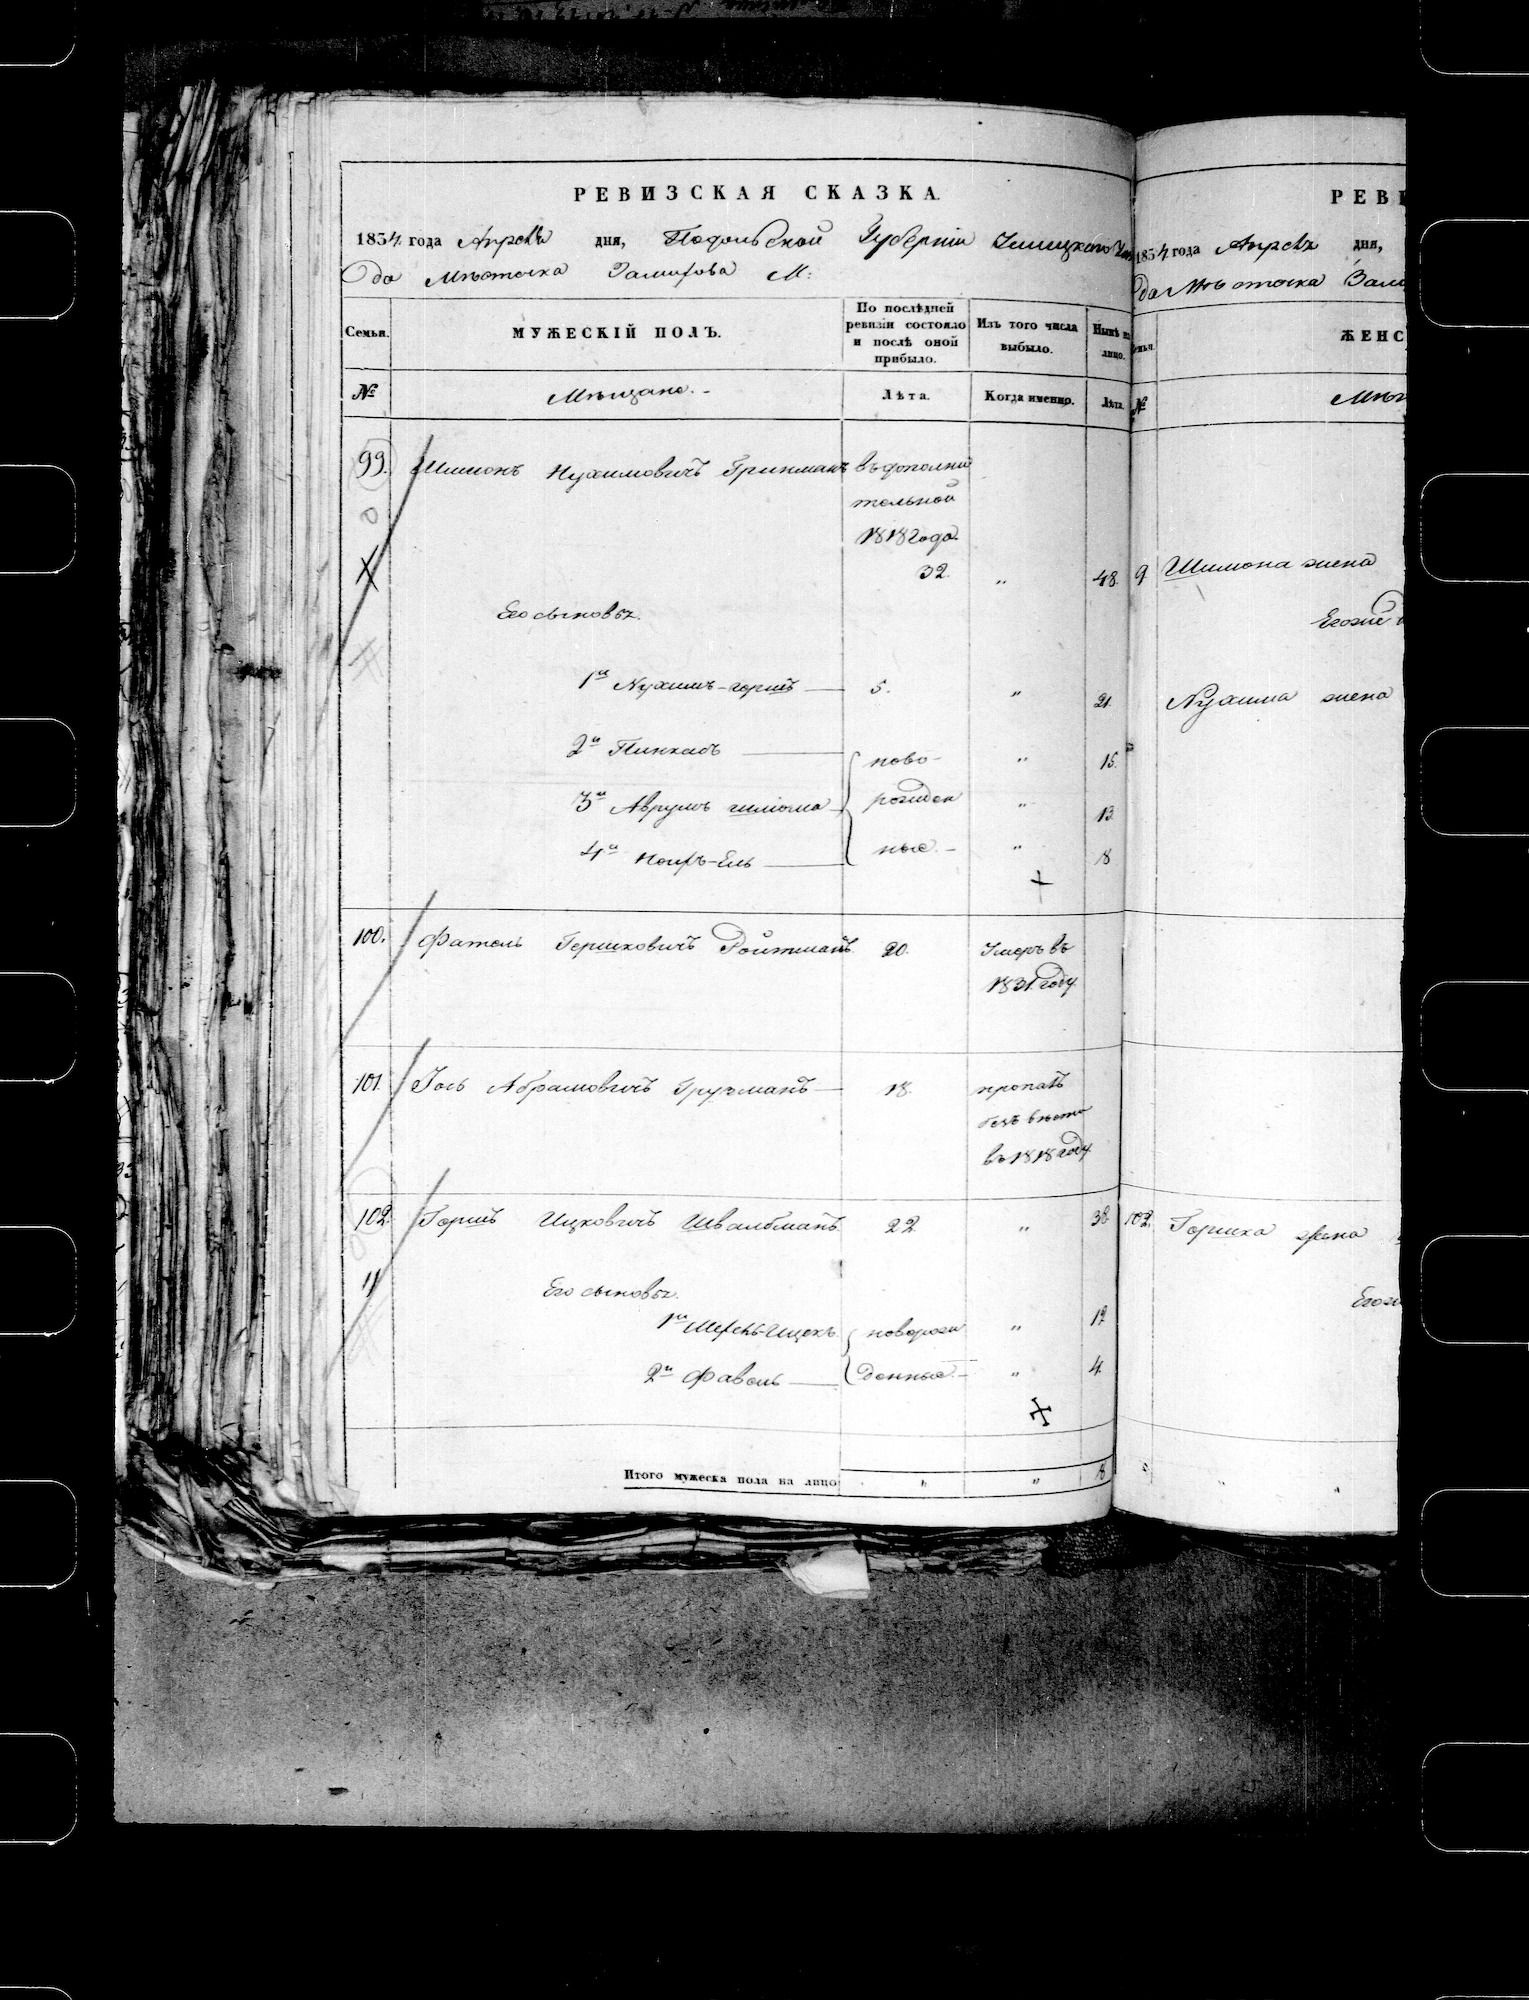 РЕВИЗСКАЯ СКАЗКА.
1834 года Апреля дня, Подольской Губерніи Ушицкого Уѣз
да Мѣстечка Замихова
Семьи.
МУЖЕСКІЙ ПОЛЪ.
По послѣдней ревизіи состояло и послѣ оной прибыло.
Изъ того числа выбыло.
Нынѣ на лицо.
№
Мѣщане.
Лѣта.
Когда именно.
Лѣта.
99. Шимонъ Нухимовичъ Гринманъ въ дополни
тельной
1818 года.
32. " 48.
Его сыновья.
1й Нухимъ-Гершъ 5. " 21.
2й Пинкасъ ново- " 15.
3й Аврумъ рожден " 13.
4й ные. " 8
100. Гершковичъ Ройтманъ 20. Умеръ въ
1831 году.
101. Іось Абрамовичъ 18. пропалъ
безъ вѣсти
въ 1818 году.
102. Гершъ Ицковичъ Швалбманъ 22 " 38.
11
Его сыновья.
1й Ицекъ новорож " 12
2й Фавель денные. " 4.
Итого мужеска пола на лицо " " 8
РЕВ
1834 года Апреля дня,
да Мѣстечка Зами
ЖЕНС
№
Мѣщ
9 Шимона жена
Егоже
Нухима жена
102. Гершка жена
Егож